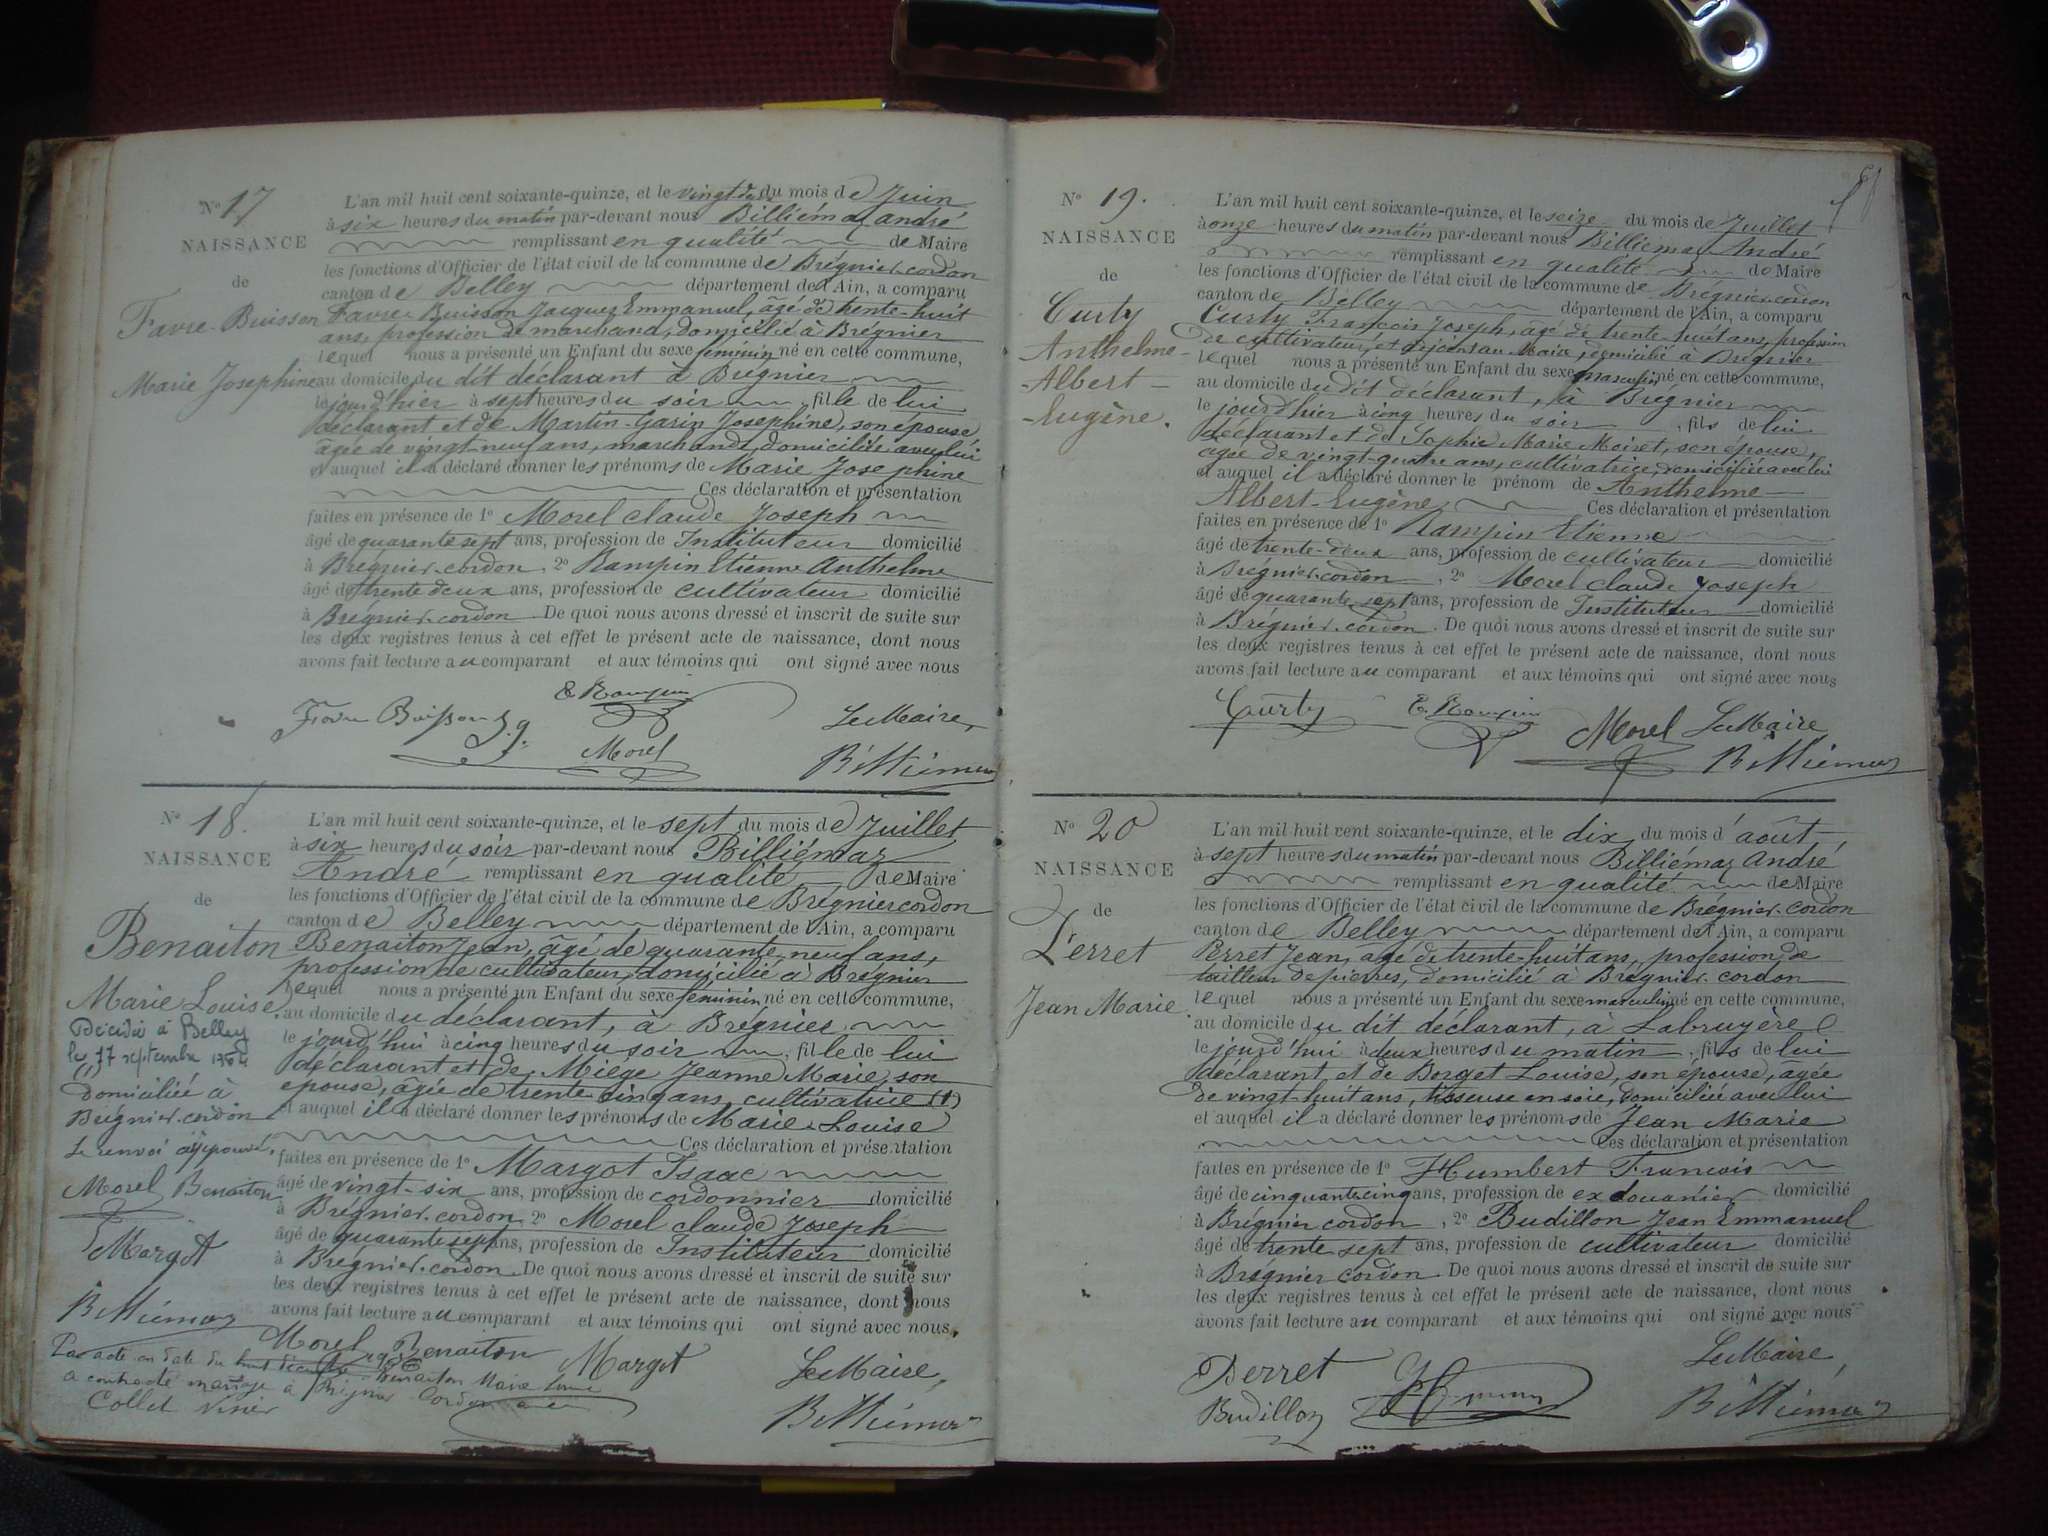 N° 17
NAISSANCE
de
Favre-Buisson
Marie Joséphine
L'an mil huit cent soixante-quinze, et le vingt du mois de Juin
à six heures du matin par-devant nous Billiémaz André
remplissant en qualité de Maire
les fonctions d'Officier de l'état civil de la commune de Brégnier-cordon
canton de Belley département de l'Ain, a comparu
Favre-Buisson Jacques Emmanuel, âgé de trente-huit
ans, profession de marchand, domicilié à Brégnier
lequel nous a présenté un Enfant du sexe féminin né en cette commune,
au domicile du dit déclarant à Brégnier
le jourd'hier à sept heures du soir, fille de lui
déclarant et de Martin-Garin Joséphine, son épouse
âgée de vingt-neuf ans, marchande, domiciliée avec lui
et auquel il a déclaré donner les prénoms de Marie Joséphine
Ces déclaration et présentation
faites en présence de 1° Morel claude Joseph
âgé de quarante sept ans, profession de Instituteur domicilié
à Brégnier-cordon, 2° Rampin Etienne Anthelme
âgé de trente deux ans, profession de cultivateur domicilié
à Brégnier-cordon. De quoi nous avons dressé et inscrit de suite sur
les deux registres tenus à cet effet le présent acte de naissance, dont nous
avons fait lecture au comparant et aux témoins qui ont signé avec nous
E Rampin
Favre Buisson J. Le Maire,
Morel Billiémaz
N° 18.
NAISSANCE
de
Benaiton
Marie Louise.
Décédée à Belley
le 17 septembre
(1)
Domiciliée à
Brégnier-cordon
Le renvoi approuvé.
Morel Benaiton
Margot
Billiémaz
L'an mil huit cent soixante-quinze, et le sept du mois de Juillet
à six heures du soir par-devant nous Billiémaz
André remplissant en qualité de Maire
les fonctions d'Officier de l'état civil de la commune de Brégnier cordon
canton de Belley département de l'Ain, a comparu
Benaiton Jean, âgé de quarante-neuf ans,
profession de cultivateur, domicilié à Brégnier
lequel nous a présenté un Enfant du sexe féminin né en cette commune,
au domicile du déclarant, à Brégnier
le jourd'hui à cinq heures du soir, fille de lui
déclarant et de Miège Jeanne Marie, son
épouse, âgée de trente cinq ans, cultivatrice (1)
et auquel il a déclaré donner les prénoms de Marie-Louise
Ces déclaration et présentation
faites en présence de 1° Margot Isaac
âgé de vingt-six ans, profession de cordonnier domicilié
à Brégnier-cordon 2° Morel claude Joseph
âgé de quarante sept ans, profession de Instituteur domicilié
à Brégnier-cordon. De quoi nous avons dressé et inscrit de suite sur
les deux registres tenus à cet effet le présent acte de naissance, dont nous
avons fait lecture au comparant et aux témoins qui ont signé avec nous.
Morel Benaiton Margot Le Maire,
Billiémaz
Par acte en date du huit 1906 Benaiton Marie Louise
a contracté mariage à Brégnier Cordon avec
Collet
N° 19.
NAISSANCE
de
Curty
Anthelme-
Albert-
Eugène.
L'an mil huit cent soixante-quinze, et le seize du mois de Juillet
à onze heures du matin par-devant nous Billiémaz André
remplissant en qualité de Maire
les fonctions d'Officier de l'état civil de la commune de Brégnier-cordon
canton de Belley département de l'Ain, a comparu
Curty François Joseph, âgé de trente-huit ans, profession
de cultivateur, et adjoint au Maire, domicilié à Brégnier
lequel nous a présenté un Enfant du sexe masculin né en cette commune,
au domicile du dit déclarant, à Brégnier
le jourd'hier à cinq heures du soir, fils de lui
déclarant et de Sophie Marie Moiret, son épouse,
agée de vingt-quatre ans, cultivatrice, domiciliée avec lui
et auquel il a déclaré donner le prénom de Anthelme-
Albert-Eugène Ces déclaration et présentation
faites en présence de 1° Rampin Etienne
âgé de trente-deux ans, profession de cultivateur domicilié
à Brégnier-cordon, 2° Morel claude Joseph
âgé de quarante sept ans, profession de Instituteur domicilié
à Brégnier-cordon. De quoi nous avons dressé et inscrit de suite sur
les deux registres tenus à cet effet le présent acte de naissance, dont nous
avons fait lecture au comparant et aux témoins qui ont signé avec nous
Curty E. Rampin Morel Le Maire
Billiémaz
N° 20
NAISSANCE
de
Perret
Jean Marie.
L'an mil huit cent soixante-quinze, et le dix du mois d'août
à sept heures du matin par-devant nous Billiémaz André
remplissant en qualité de Maire
les fonctions d'Officier de l'état civil de la commune de Brégnier-cordon
canton de Belley département de l'Ain, a comparu
Perret Jean, agé de trente-huit ans, profession de
tailleur de pierres, domicilié à Brégnier-cordon
lequel nous a présenté un Enfant du sexe masculin né en cette commune,
au domicile du dit déclarant, à Labruyère
le jourd'hui à deux heures du matin, fils de lui
déclarant et de Borget Louise, son épouse, agée
de vingt-huit ans, tisseuse en soie, domiciliée avec lui
et auquel il a déclaré donner les prénoms de Jean Marie
Ces déclaration et présentation
faites en présence de 1° Humbert François
âgé de cinquante cinq ans, profession de ex douanier domicilié
à Brégnier cordon, 2° Budillon Jean Emmanuel
âgé de trente sept ans, profession de cultivateur domicilié
à Brégnier cordon. De quoi nous avons dressé et inscrit de suite sur
les deux registres tenus à cet effet le présent acte de naissance, dont nous
avons fait lecture au comparant et aux témoins qui ont signé avec nous
Perret Le Maire,
Budillon Billiémaz